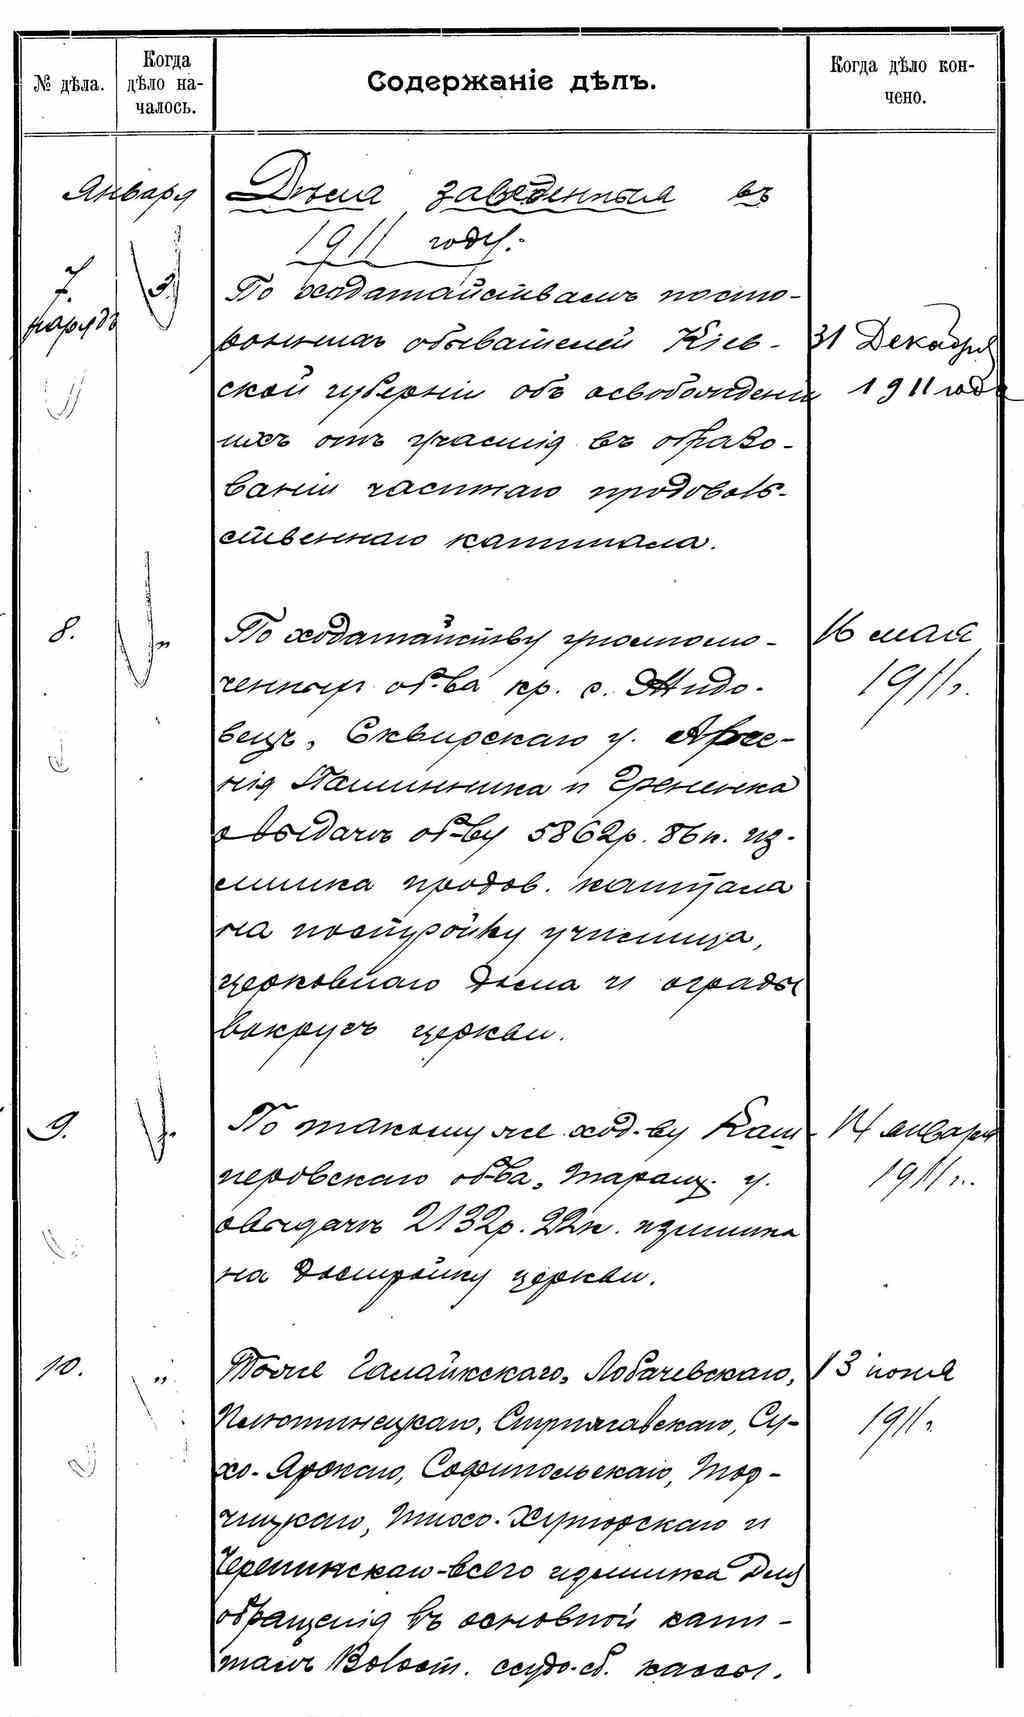 № дѣла.
Когда
дѣло на-
чалось.
Содержаніе дѣлъ.
Когда дѣло кон-
чено.
Января
Дѣла заведенныя въ
1911 году:
7.
нарядъ
3.
По ходатайствамъ посто-
роннихъ обывателей Кіев-
ской губерніи объ освобожденіи
ихъ отъ участія въ образо-
ваніи частнаго продоволь-
ственнаго капитала.
31 Декабря
1911 года
8.
"
По ходатайству уполномо-
ченныхъ об-ва кр. с. Жидо-
вецъ, Сквирскаго у. Арсе-
нія и
о выдачѣ об-ву 5862р. 86к. из-
лишка продов. капитала
на постройку училища,
церковнаго дома и ограды
вокругъ церкви.
16 мая
1911г.
9.
"
По такому же ход-ву Каш-
перовскаго об-ва, Таращ. у.
о выдачѣ 2132р. 22к. излишка
на достройку церкви.
14 января
1911г.
10.
"
Тоже Галайкскаго, Лобачевскаго,
Стрижавскаго, Су-
хо-Ярскаго, Софипольскаго, Тор-
чицкаго, Тихо-Хуторскаго и
Черепинскаго-всего излишка для
обращенія въ основной капи-
талъ Волост. ссудо-сб. кассы.
13 іюня
1911г.